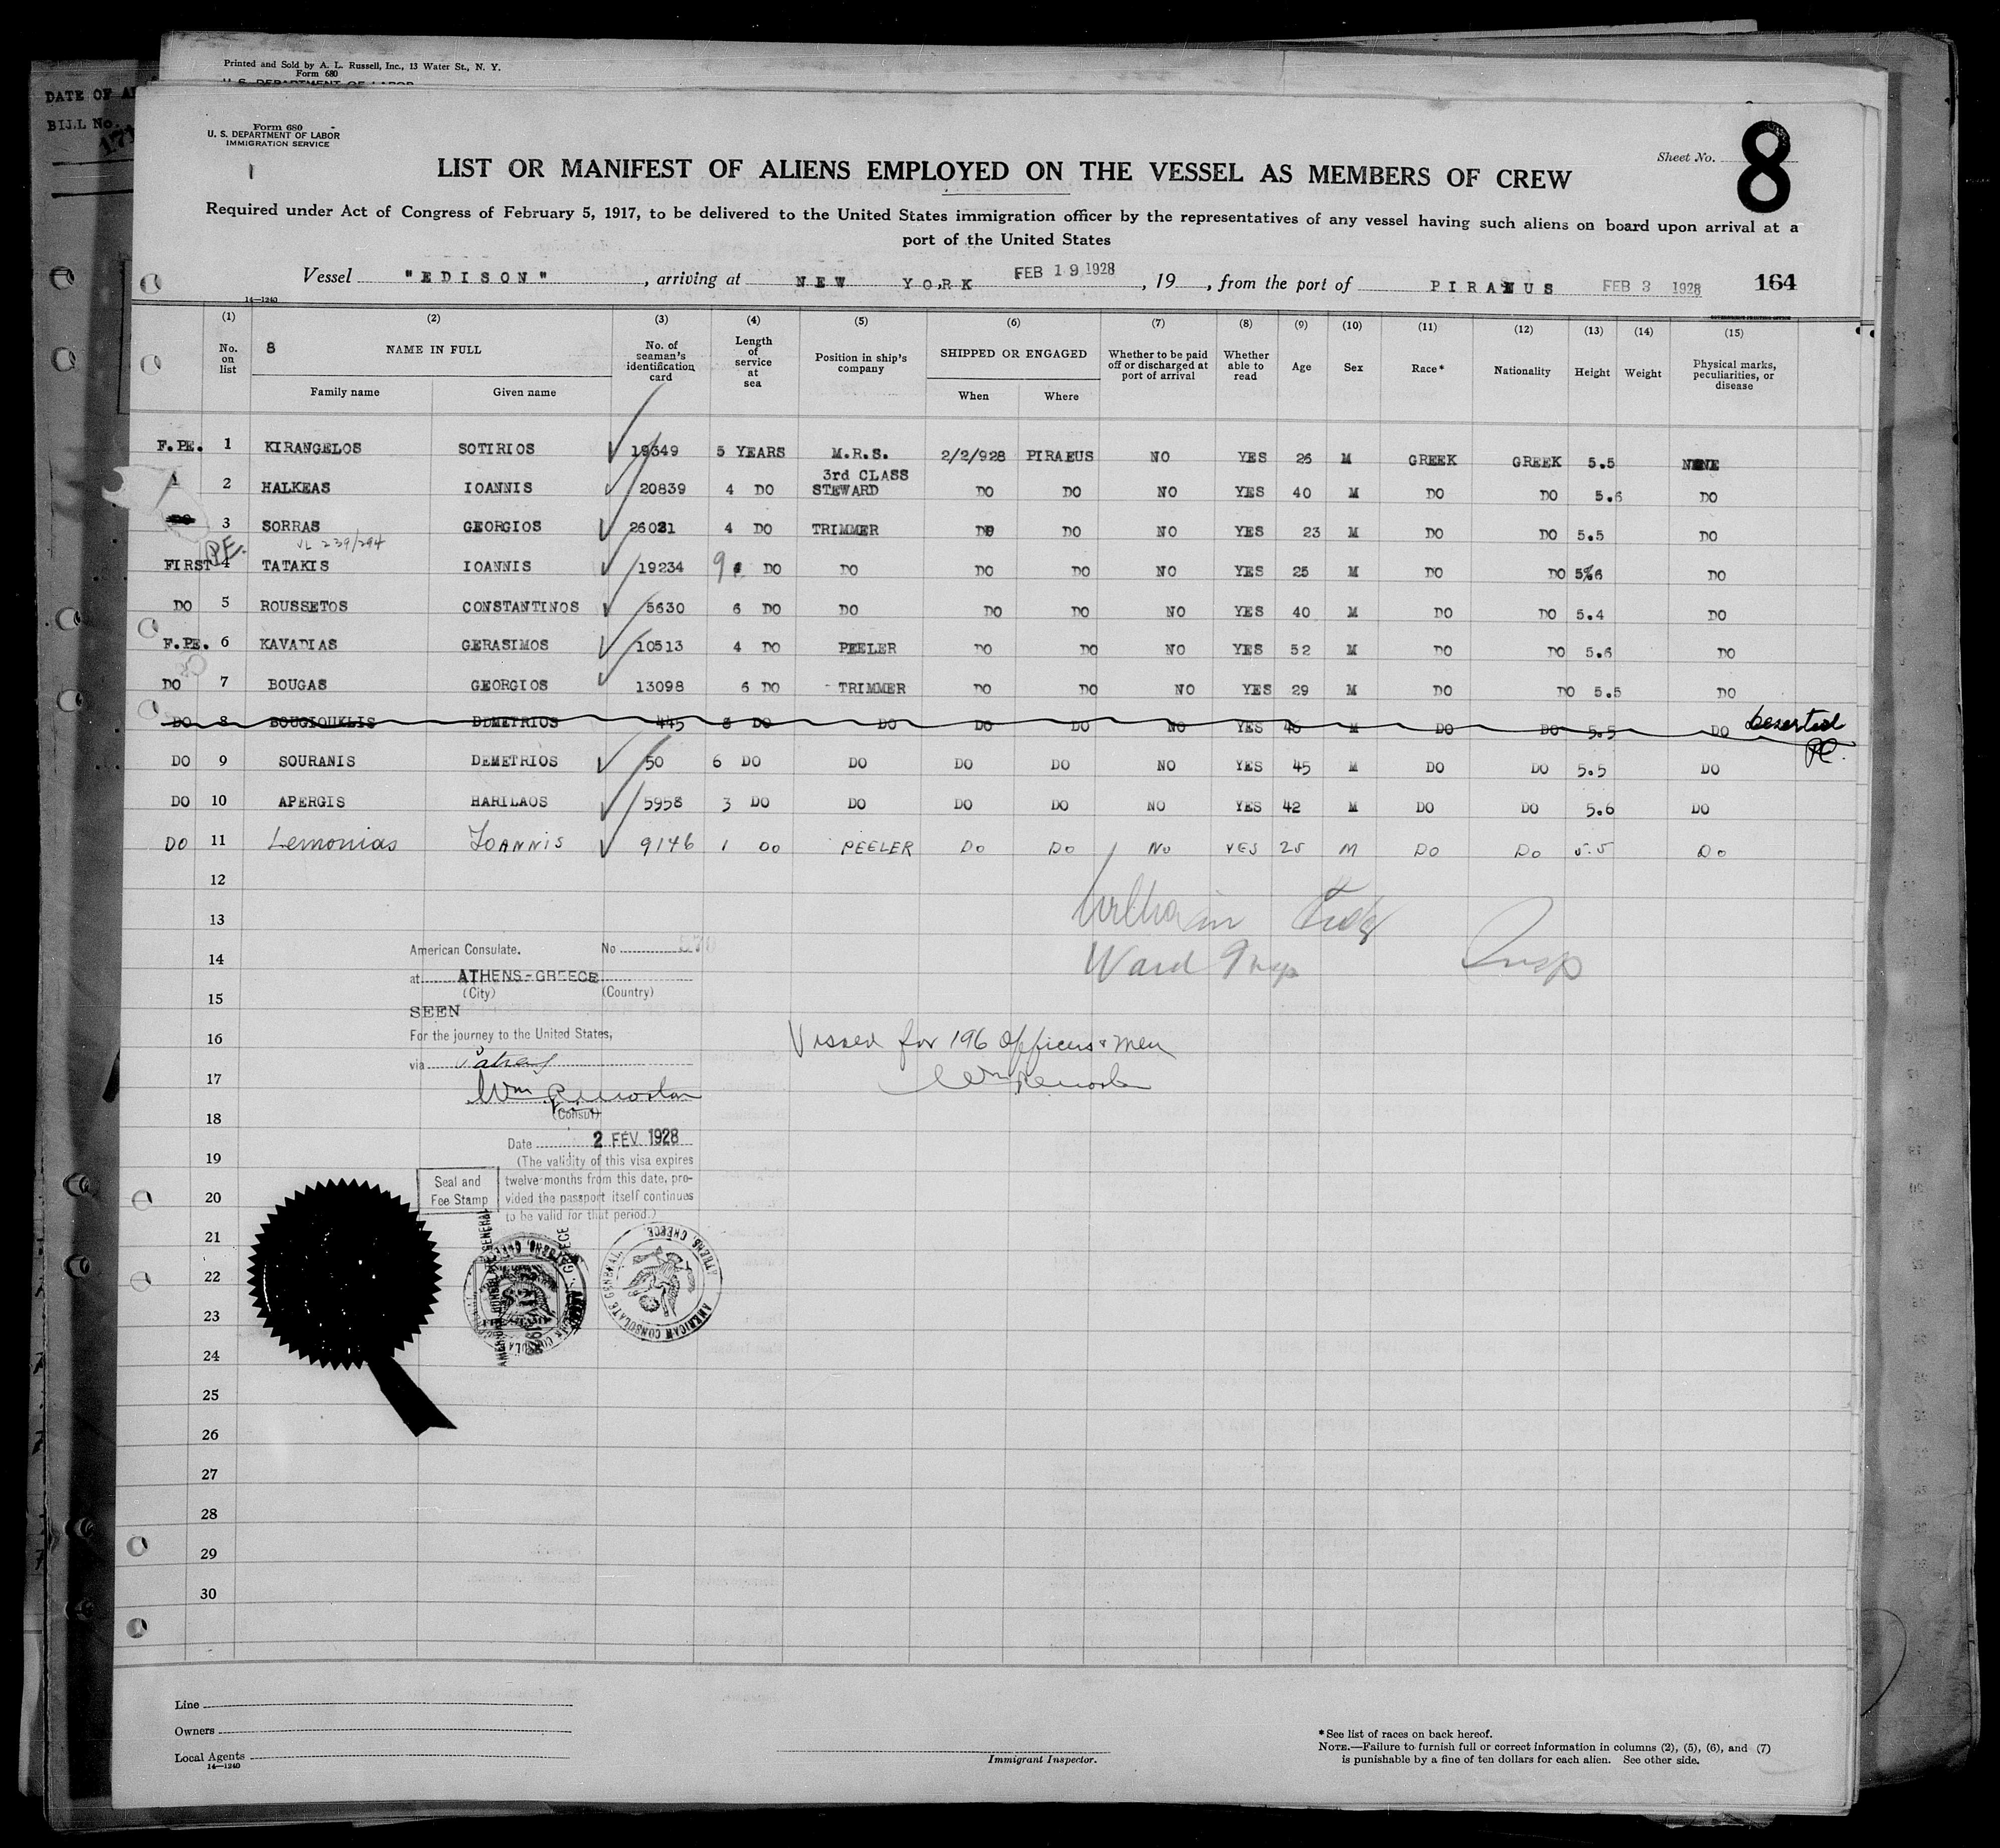 Printed and Sold by A. L. Russell, Inc., 13 Water St., N. Y.
Form 680
U. S. DEPARTMENT OF LABOR
DATE OF
BILL No.
Form 680
U. S. DEPARTMENT OF LABOR
IMMIGRATION SERVICE
Sheet No. 8
LIST OR MANIFEST OF ALIENS EMPLOYED ON THE VESSEL AS MEMBERS OF CREW
Required under Act of Congress of February 5, 1917, to be delivered to the United States immigration officer by the representatives of any vessel having such aliens on board upon arrival at a
port of the United States
Vessel "EDISON", arriving at NEW YORK FEB 19 1928, 19 , from the port of PIRAEUS FEB 3 1928 164
14—1240
(1) (2) (3) (4) (5) (6) (7) (8) (9) (10) (11) (12) (13) (14) (15)
No. on list 8 NAME IN FULL No. of seaman's identification card Length of service at sea Position in ship's company SHIPPED OR ENGAGED Whether to be paid off or discharged at port of arrival Whether able to read Age Sex Race* Nationality Height Weight Physical marks, peculiarities, or disease
Family name Given name When Where
F.PE. 1 KIRANGELOS SOTIRIOS 19349 5 YEARS M.R.S. 2/2/928 PIRAEUS NO YES 26 M GREEK GREEK 5.5 NONE
2 HALKEAS IOANNIS 20839 4 DO 3rd CLASS STEWARD DO DO NO YES 40 M DO DO 5.6 DO
3 SORRAS GEORGIOS 26031 4 DO TRIMMER DO DO NO YES 23 M DO DO 5.5 DO
P.E. VL 239/294
FIRST 4 TATAKIS IOANNIS 19234 9 DO DO DO DO NO YES 25 M DO DO 5.6 DO
DO 5 ROUSSETOS CONSTANTINOS 5630 6 DO DO DO DO NO YES 40 M DO DO 5.4 DO
F.PE. 6 KAVADIAS GERASIMOS 10513 4 DO PEELER DO DO NO YES 52 M DO DO 5.6 DO
DO 7 BOUGAS GEORGIOS 13098 6 DO TRIMMER DO DO NO YES 29 M DO DO 5.5 DO
DO 8 BOUGIOUKLIS DEMETRIOS 445 8 DO DO DO DO NO YES 46 M DO DO 5.5 DO Deserted
DO 9 SOURANIS DEMETRIOS 50 6 DO DO DO DO NO YES 45 M DO DO 5.5 DO
DO 10 APERGIS HARILAOS 5958 3 DO DO DO DO NO YES 42 M DO DO 5.6 DO
DO 11 Lemonias IOANNIS 9146 1 DO PEELER DO DO NO YES 25 M DO DO 5.5 DO
12
13
14
15
16
17
18
19
20
21
22
23
24
25
26
27
28
29
30
William
Ward Insp Insp
American Consulate. No
at ATHENS-GREECE
(City) (Country)
SEEN
For the journey to the United States,
via Patras
(Consul)
Vissed for 196 officers & men
Date 2 FEV 1928
(The validity of this visa expires
twelve months from this date, pro-
vided the passport itself continues
to be valid for that period.)
Seal and
Fee Stamp
AMERICAN CONSULATE GENERAL
ATHENS, GREECE
AMERICAN CONSULATE GENERAL, ATHENS, GREECE.
Line
Owners
Local Agents
14—1240
Immigrant Inspector.
*See list of races on back hereof.
NOTE.—Failure to furnish full or correct information in columns (2), (5), (6), and (7)
is punishable by a fine of ten dollars for each alien. See other side.